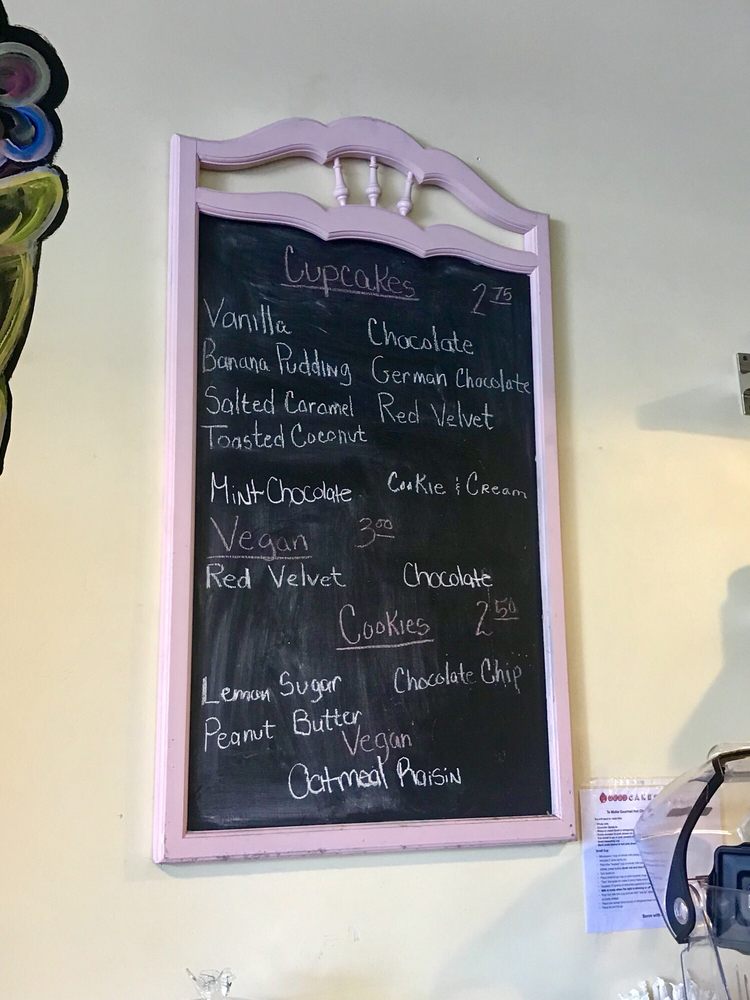 Cupcakes 2 75
Vanilla Chocolate
Banana Pudding German Chocolate
Salted Caramel Red Velvet
Toasted Coconut
Mint Chocolate Cookie & Cream
Vegan 3 00
Red Velvet Chocolate
Cookies 2 50
Lemon Sugar Chocolate Chip
Peanut Butter
Vegan
Oatmeal Raisin